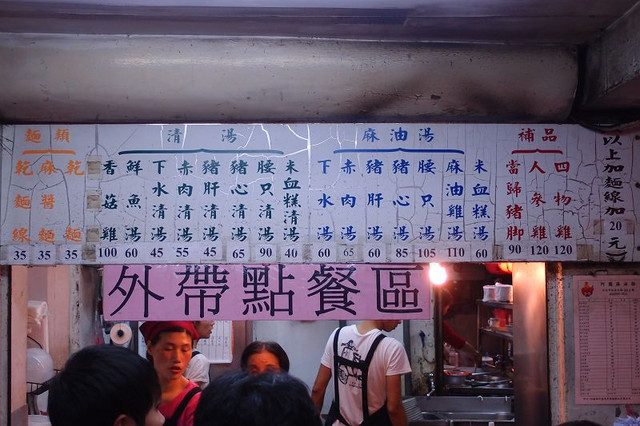 麵類
乾麵線 35
麻醬麵 35
乾麵 35
清湯
香菇雞 100
鮮魚湯 60
下水清湯 45
赤肉清湯 55
豬肝清湯 45
豬心清湯 65
腰只清湯 90
米血糕清湯 40
麻油湯
下水湯 60
赤肉湯 65
豬肝湯 60
豬心湯 85
腰只湯 105
麻油雞 110
米血糕湯 60
補品
當歸豬腳 90
人參雞 120
四物雞 120
以上加麵線加20元
外帶點餐區